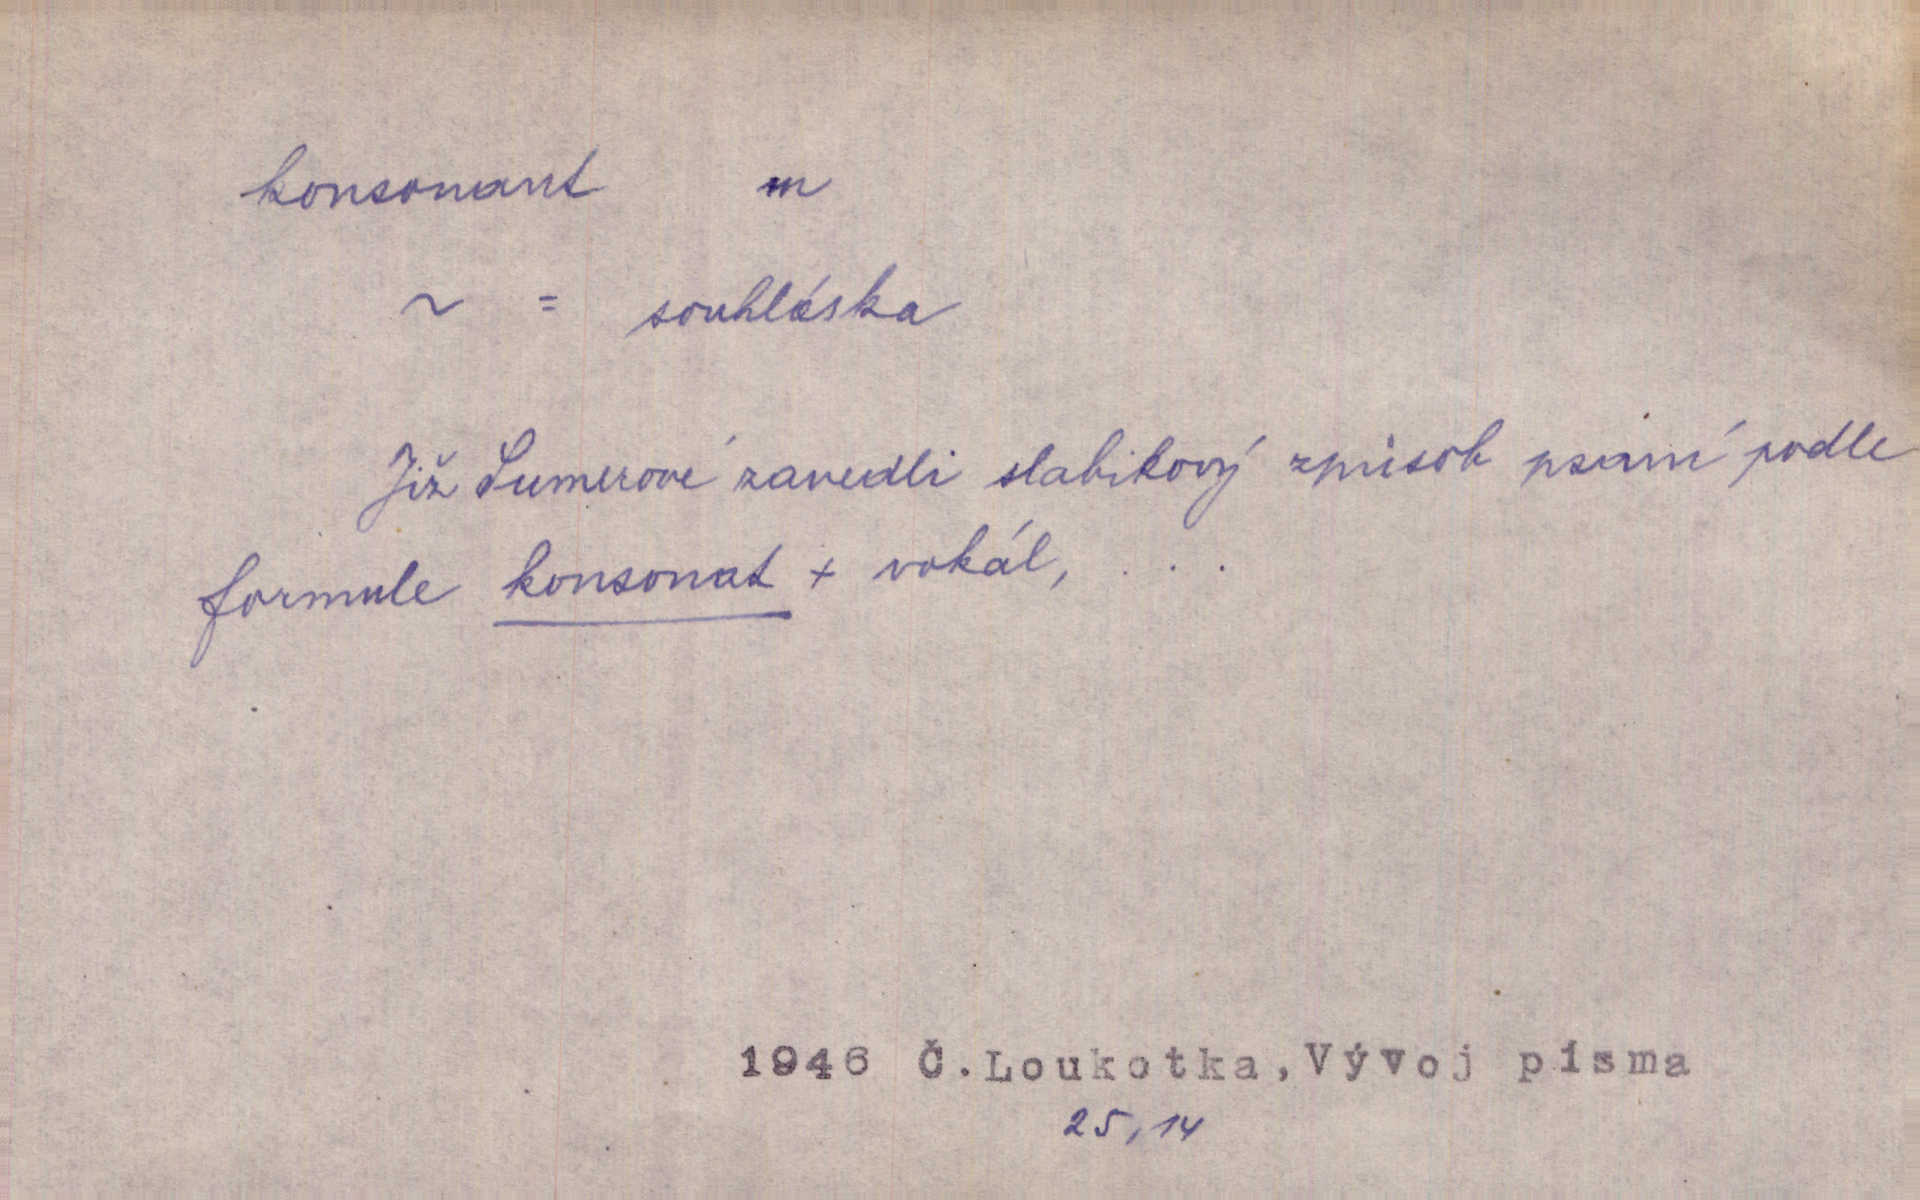 konsonant m
~ = souhláska
Již Sumerové zavedli slabikový způsob psaní podle
formule konsonat + vokál, . . .
1946 Č.Loukotka,Vývoj písma
25,14